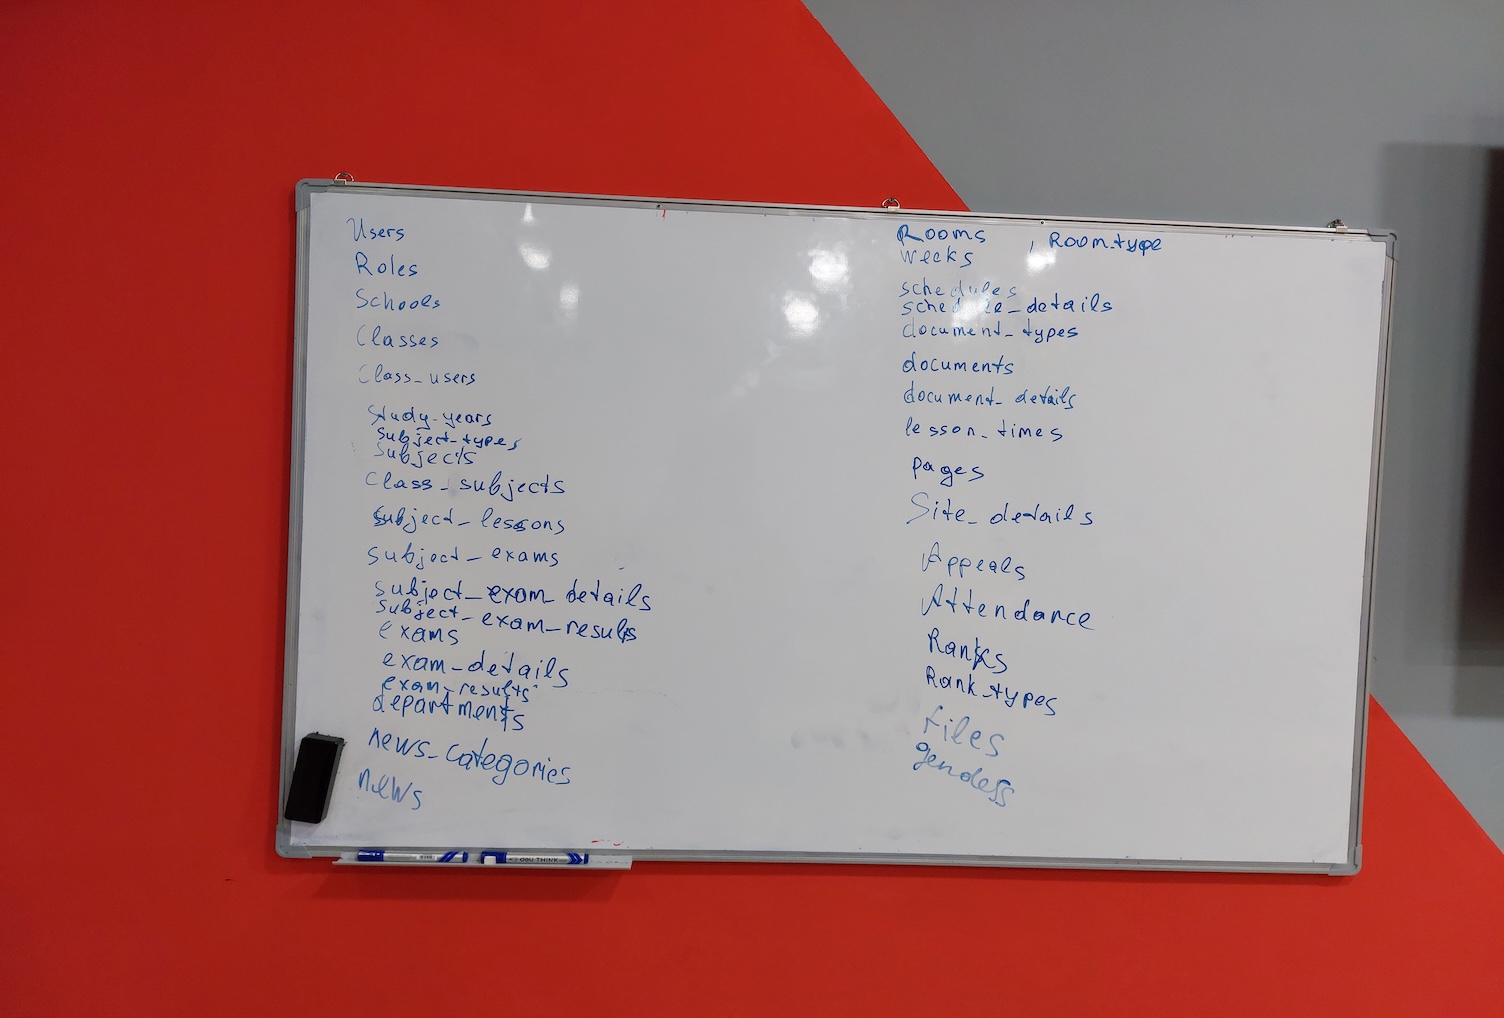 Users
Roles
Schools
Classes
Class_users
Study_years
Subject_types
Subjects
Class_subjects
Subject_lessons
subject_exams
subject_exam_details
subject_exam_results
exams
exam_details
exam_results
departments
news_categories
news
Rooms , Room_type
weeks
schedules
schedule_details
document_types
documents
document_details
lesson_times
pages
Site_details
Appeals
Attendance
Ranks
Rank_types
files
genders
deli THINK